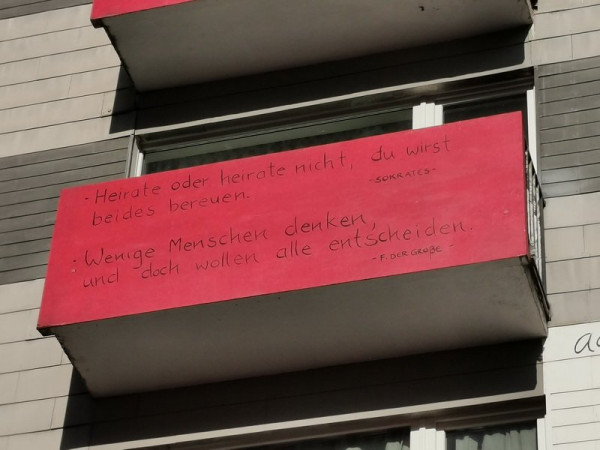 - Heirate oder heirate nicht, du wirst
beides bereuen.
- SOKRATES -
- Wenige Menschen denken,
und doch wollen alle entscheiden.
- F. DER GROßE -